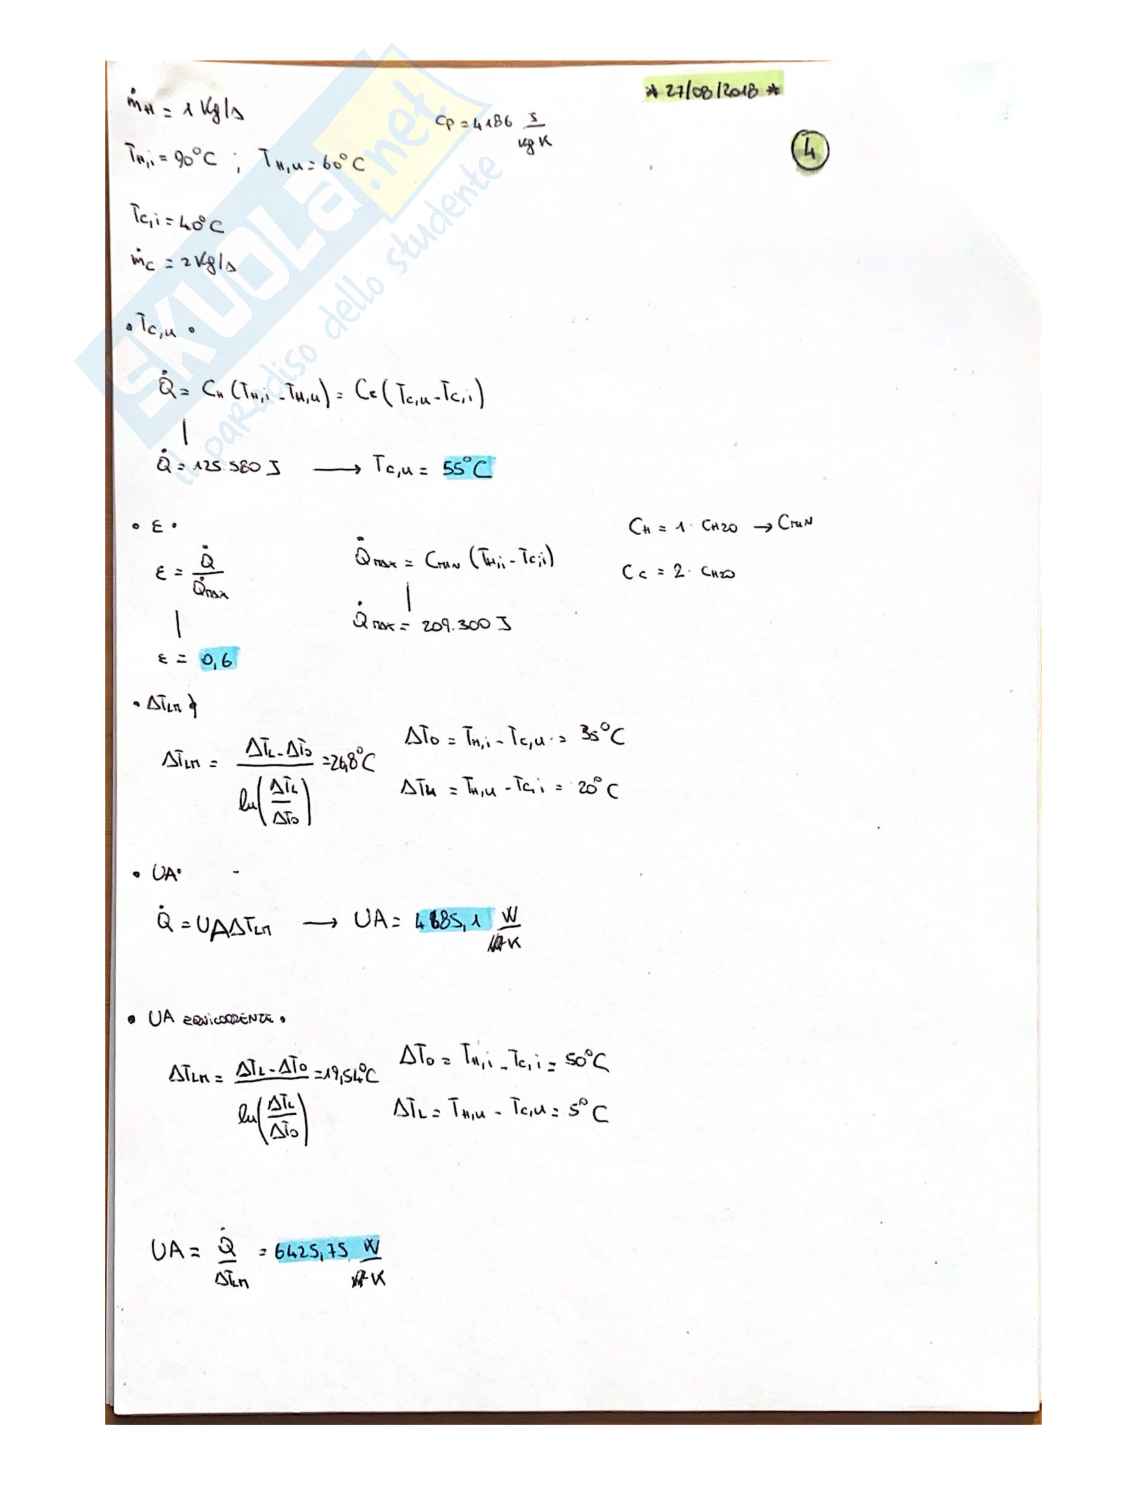 * 27/08/2018 *
4
ṁH = 1 Kg/s
cp = 4186 J/kg K
TH,i = 90°C ; TH,u = 60°C
Tc,i = 40°C
ṁc = 2 Kg/s
• Tc,u •
Q̇ = CH (TH,i - TH,u) = Cc (Tc,u - Tc,i)
Q̇ = 125.580 J → Tc,u = 55°C
• ε •
CH = 1 · CH2O → CMIN
ε = Q̇/Q̇max
Q̇max = CMIN (TH,i - Tc,i)
Cc = 2 · CH2O
Q̇max = 209.300 J
ε = 0,6
• ΔTLn
ΔTLn = (ΔTL - ΔT0)/ln(ΔTL/ΔT0) = 26,8°C
ΔT0 = TH,i - Tc,u = 35°C
ΔTL = TH,u - Tc,i = 20°C
• UA •
Q̇ = UAΔTLn → UA = 4685,1 W/K
• UA EQUICORRENTE •
ΔTLn = (ΔTL - ΔT0)/ln(ΔTL/ΔT0) = 19,54°C
ΔT0 = TH,i - Tc,i = 50°C
ΔTL = TH,u - Tc,u = 5°C
UA = Q̇/ΔTLn = 6425,75 W/K
SKUOLA.net
il paradiso dello studente